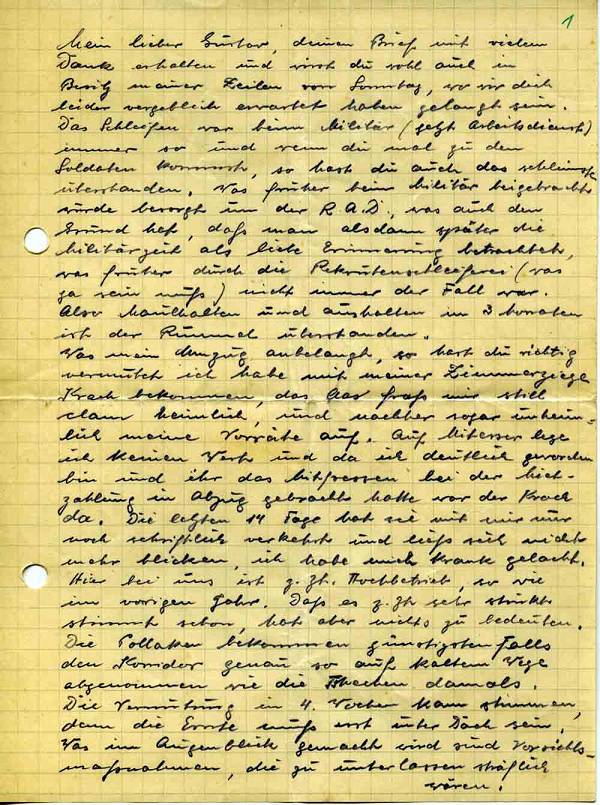 1
Mein lieber Gustav, deinen Brief mit vielem
Dank erhalten und wirst du wohl auch in
Besitz meiner Zeilen vom Sonntag, wo wir dich
leider vergeblich erwartet haben gelangt sein.
Das Schleifen war beim Militär (jetzt Arbeitsdienst)
immer so und wenn du mal zu den
Soldaten kommst, so hast du auch das schlimmste
überstanden. Was früher beim Militär beigebracht
würde besorgt nun der R.A.D., was auch den
Grund hat, daß man alsdann später die
Militärzeit als liebe Erinnerung betrachtet,
was früher durch die Rekrutenschleiferei (was
ja sein muß) nicht immer der Fall war.
Also Maulhalten und aushalten in 3 Monaten
ist der Rummel überstanden.
Was mein Umzug anbelangt, so hast du richtig
vermutet ich habe mit meiner Zimmerziege
Krach bekommen, das Aas fraß mir still
clam heimlich, und nachher sogar unheim=
lich meine Vorräte auf. Auf Mitesser lege
ich keinen Wert und da ich deutlich geworden
bin und ihr das Mitfressen bei der Miet-
zahlung in Abzug gebracht hatte war der Krach
da. Die letzten 14 Tage hat sie mit mir nur
noch schriftlich verkehrt und ließ sich nicht
mehr blicken, ich habe mich krank gelacht.
Hier bei uns ist z. Zt. Hochbetrieb, so wie
im vorigen Jahr. Daß es z. Zt sehr
stimmt schon, hat aber nichts zu bedeuten.
Die Pollaken bekommen günstigsten Falls
den Korridor genau so auf kaltem Wege
abgenommen wie die Tschechen damals.
Die Vermutung in 4. Wochen kann stimmen,
denn die Ernte muß erst unter Dach sein.
Was im Augenblick gemacht wird sind Vorsichts-
maßnahmen, die zu unterlassen sträflich
wären.